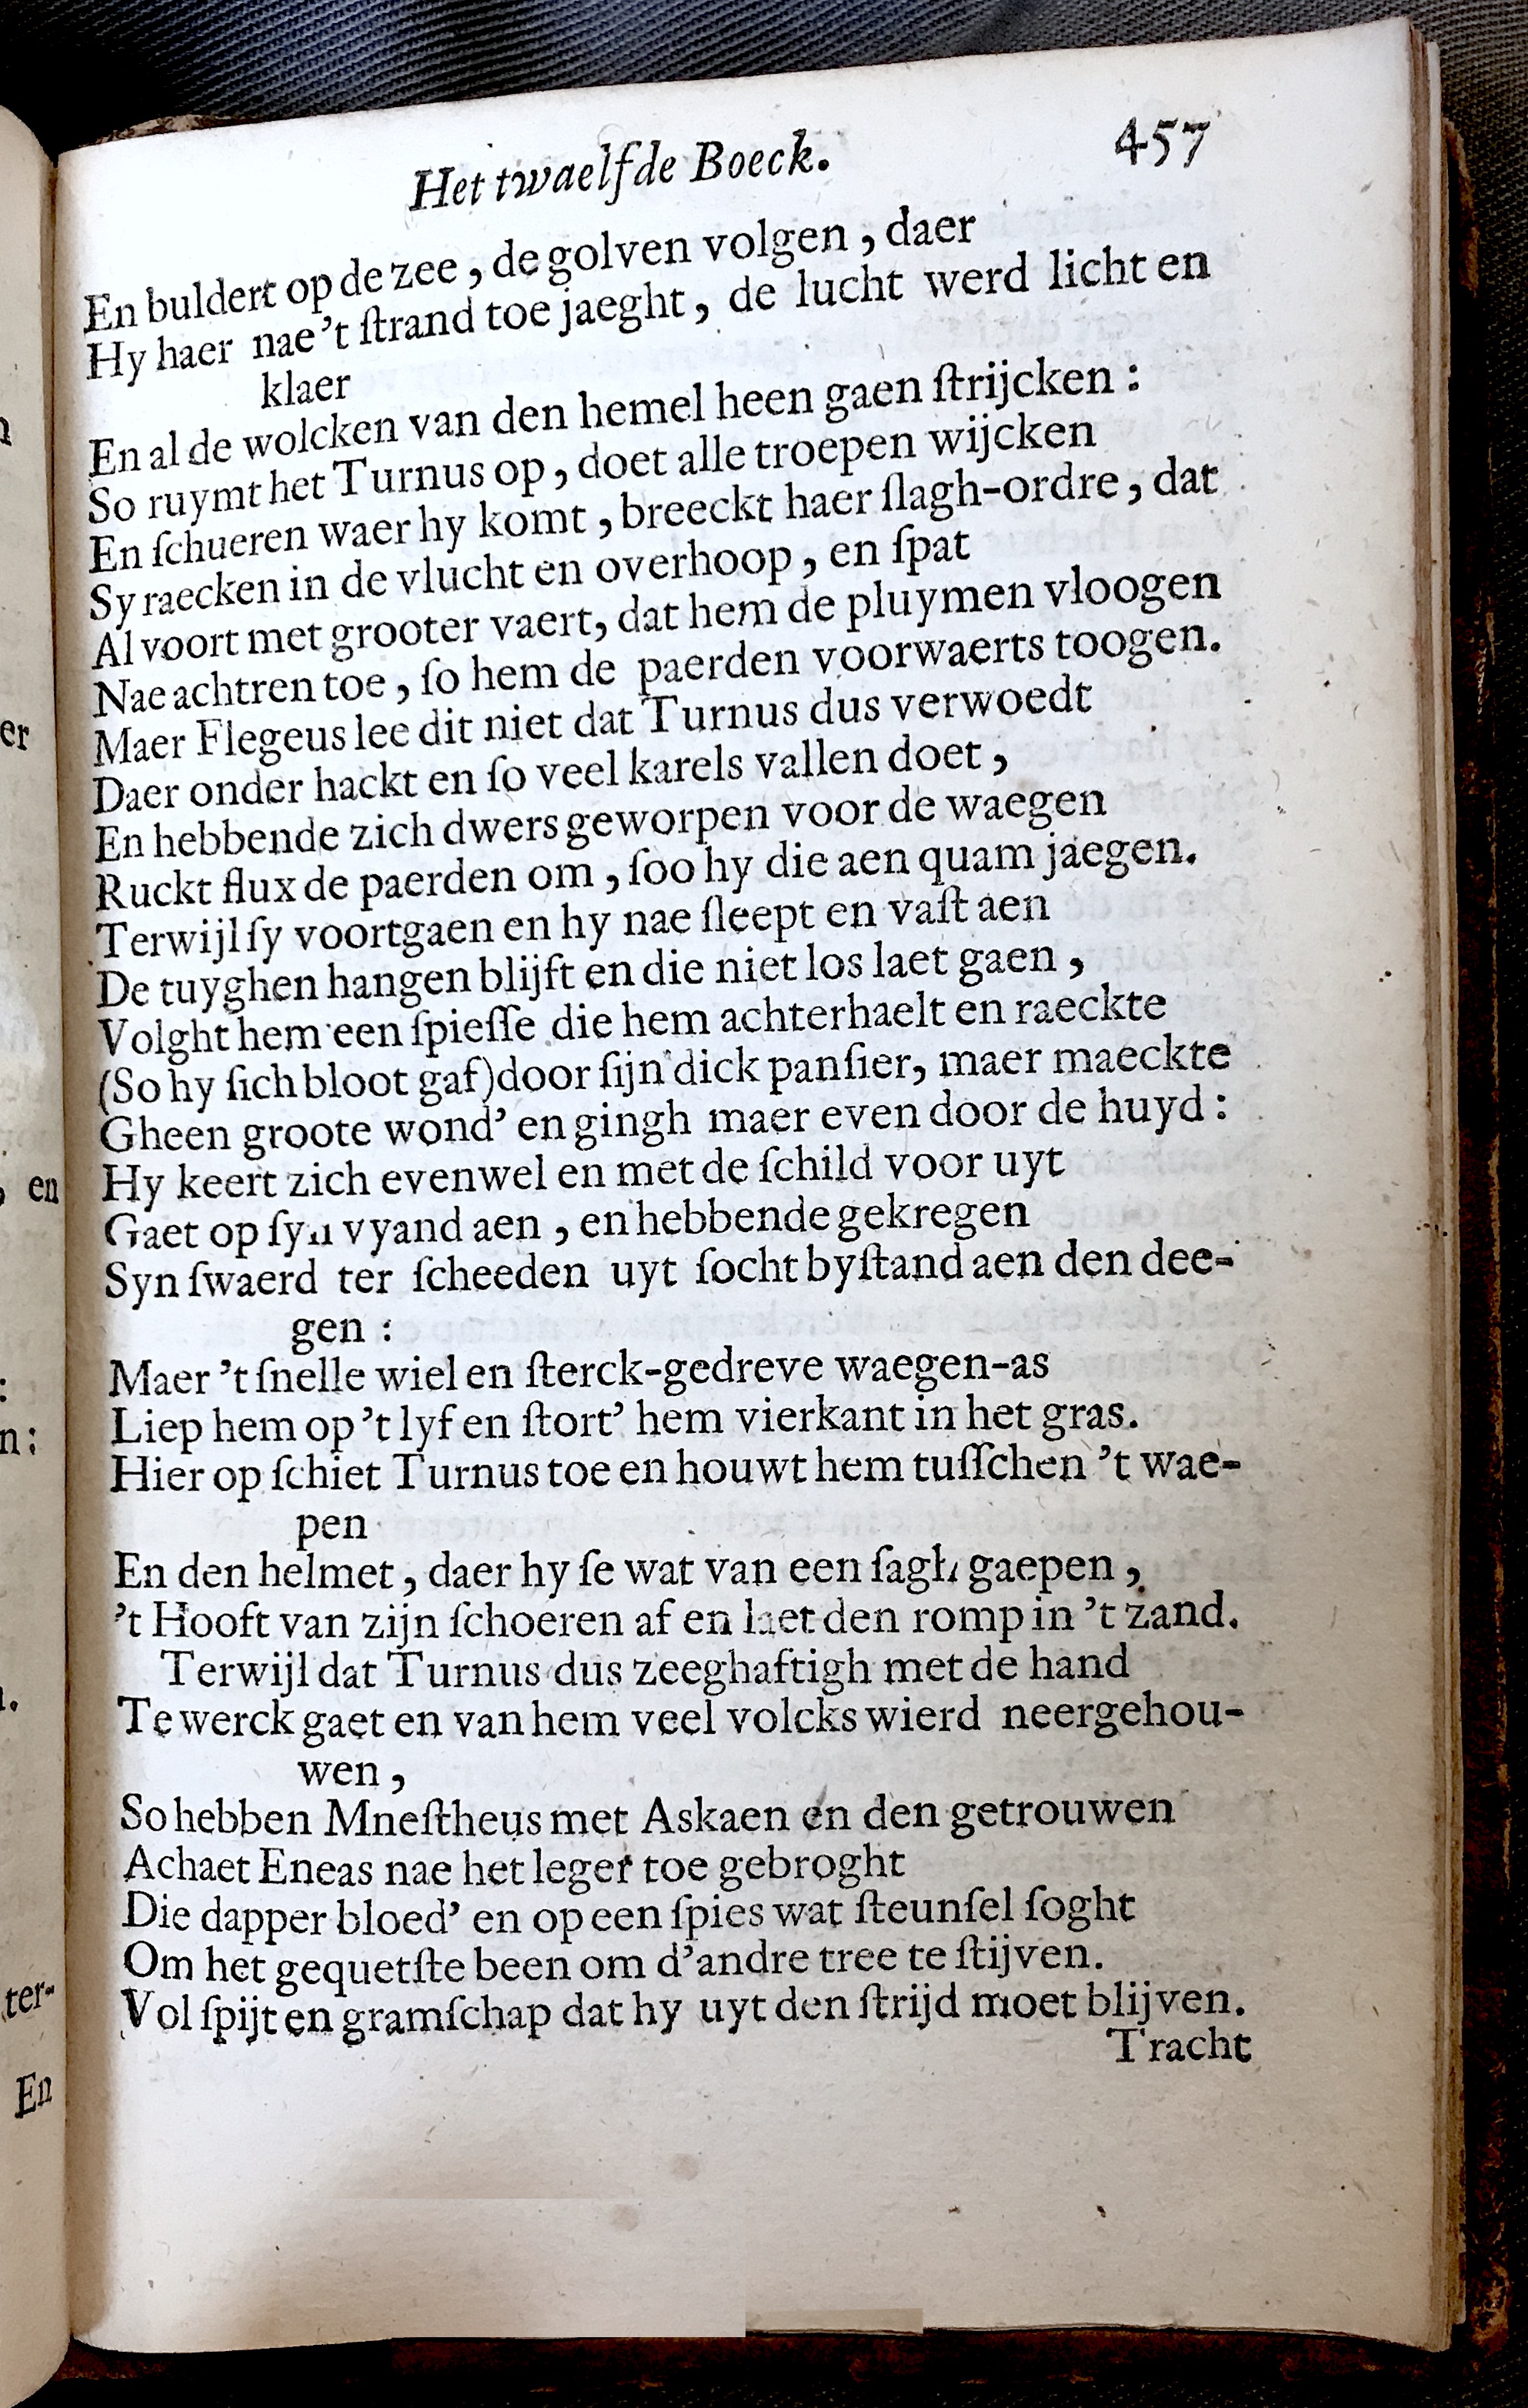 Het twaelfde Boeck. 457
En buldert op de zee, de golven volgen, daer
Hy haer nae 't ſtrand toe jaeght, de lucht werd licht en
klaer
En al de wolcken van den hemel heen gaen ſtrijcken:
So ruymt het Turnus op, doet alle troepen wijcken
En ſchueren waer hy komt, breeckt haer ſlagh-ordre, dat
Sy raecken in de vlucht en overhoop, en ſpat
Al voort met grooter vaert, dat hem de pluymen vloogen
Nae achtren toe, ſo hem de paerden voorwaerts toogen.
Maer Flegeus lee dit niet dat Turnus dus verwoedt
Daer onder hackt en ſo veel karels vallen doet,
En hebbende zich dwers geworpen voor de waegen
Ruckt flux de paerden om, ſoo hy die aen quam jaegen.
Terwijl ſy voortgaen en hy nae ſleept en vaſt aen
De tuyghen hangen blijft en die niet los laet gaen,
Volght hem een ſpieſſe die hem achterhaelt en raeckte
(So hy ſich bloot gaf) door ſijn dick panſier, maer maeckte
Gheen groote wond' en gingh maer even door de huyd:
Hy keert zich evenwel en met de ſchild voor uyt
Gaet op ſyn vyand aen, en hebbende gekregen
Syn ſwaerd ter ſcheeden uyt ſocht byſtand aen den dee-
gen:
Maer 't ſnelle wiel en ſterck-gedreve waegen-as
Liep hem op 't lyf en ſtort' hem vierkant in het gras.
Hier op ſchiet Turnus toe en houwt hem tuſſchen 't wae-
pen
En den helmet, daer hy ſe wat van een ſagh gaepen,
't Hooft van zijn ſchoeren af en laet den romp in 't zand.
Terwijl dat Turnus dus zeeghaftigh met de hand
Te werck gaet en van hem veel volcks wierd neergehou-
wen,
So hebben Mneſtheus met Askaen en den getrouwen
Achaet Eneas nae het leger toe gebroght
Die dapper bloed' en op een ſpies wat ſteunſel ſoght
Om het gequetſte been om d'andre tree te ſtijven.
Vol ſpijt en gramſchap dat hy uyt den ſtrijd moet blijven.
Tracht